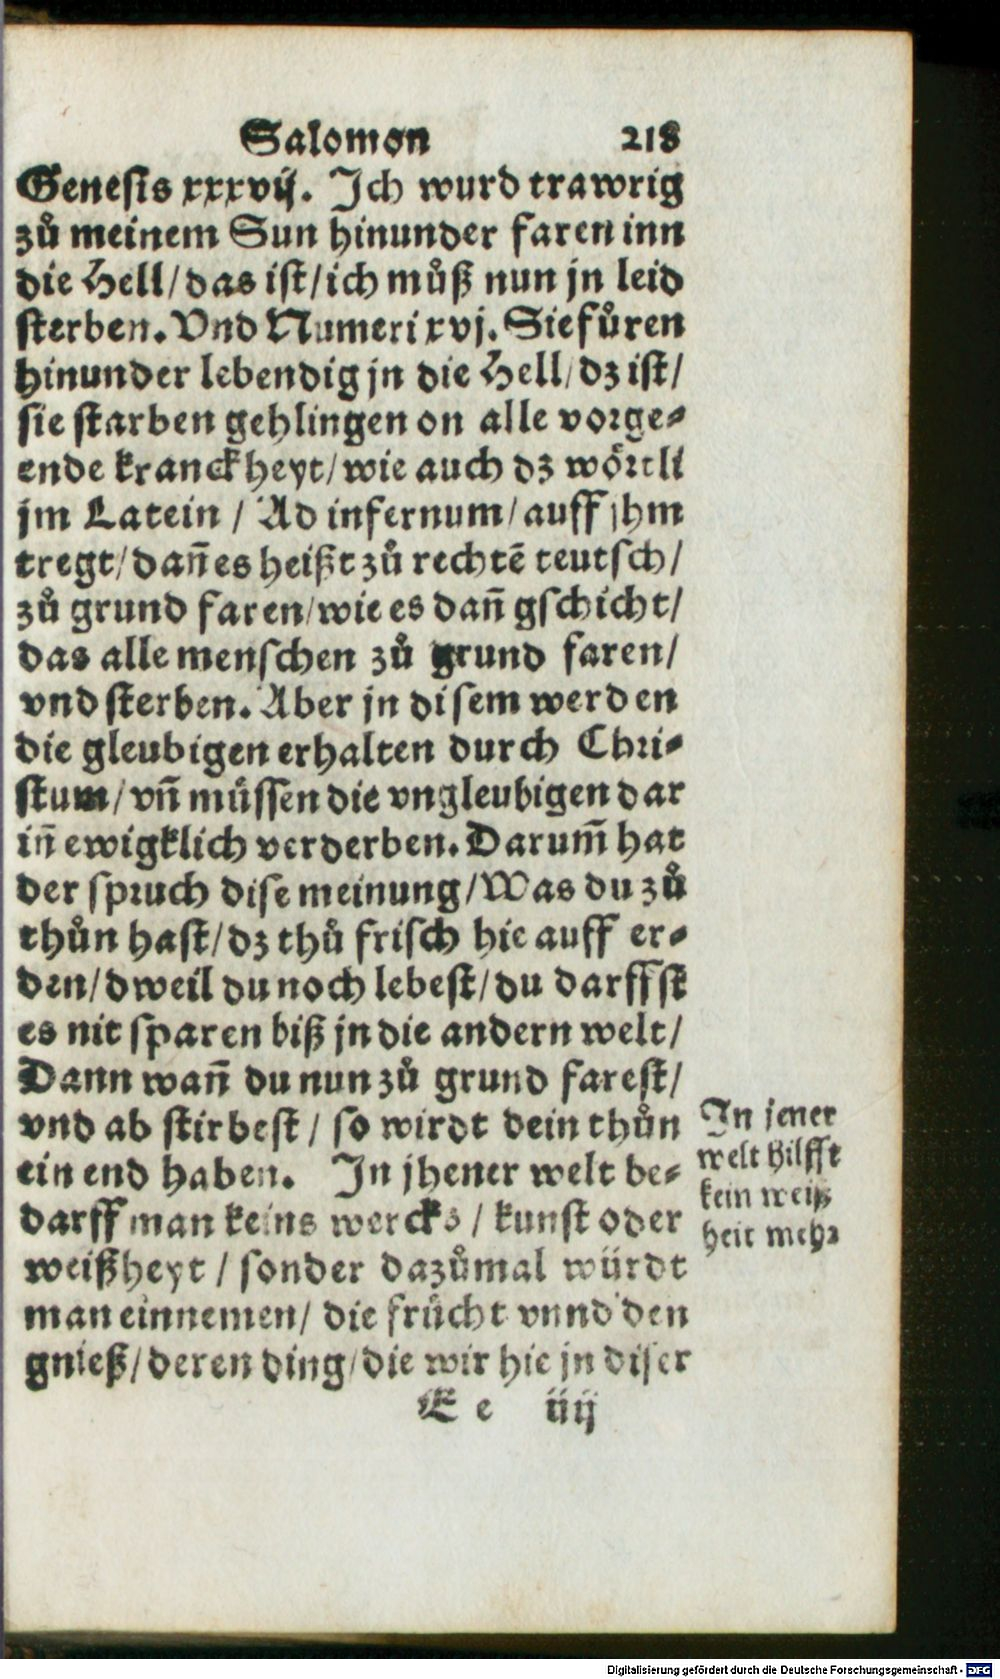 Salomon 218
Genesis xxxvij. Ich wurd trawrig
zů meinem Sun hinunder faren inn
die Hell/das ist/ich můß nun jn leid
sterben. Vnd Numeri xvj. Sie fůren
hinunder lebendig jn die Hell/dz ist/
sie starben gehlingen on alle vorge⸗
ende kranckheyt/wie auch dz wörtli
jm Latein / Ad infernum/auff jhm
tregt/dañ es heißt zů rechtẽ teutsch/
zů grund faren/wie es dañ gschicht/
das alle menschen zů grund faren/
vnd sterben. Aber jn disem werden
die gleubigen erhalten durch Chri⸗
stum/vñ müssen die vngleubigen dar
iñ ewigklich verderben. Darum̃ hat
der spruch dise meinung/Was du zů
thůn hast/dz thů frisch hie auff er⸗
den/dweil du noch lebest/du darffst
es nit sparen biß jn die andern welt/
Dann wañ du nun zů grund farest/
vnd ab stirbest / so wirdt dein thůn
ein end haben. In jhener welt be⸗
darff man keins wercks / kunst oder
weißheyt / sonder dazůmal würdt
man einnemen/ die frücht vnnd den
gnieß/deren ding/die wir hie jn diser
In jener
welt hilfft
kein weiß
heit mehr
E e iiij
Digitalisierung gefördert durch die Deutsche Forschungsgemeinschaft - DFG